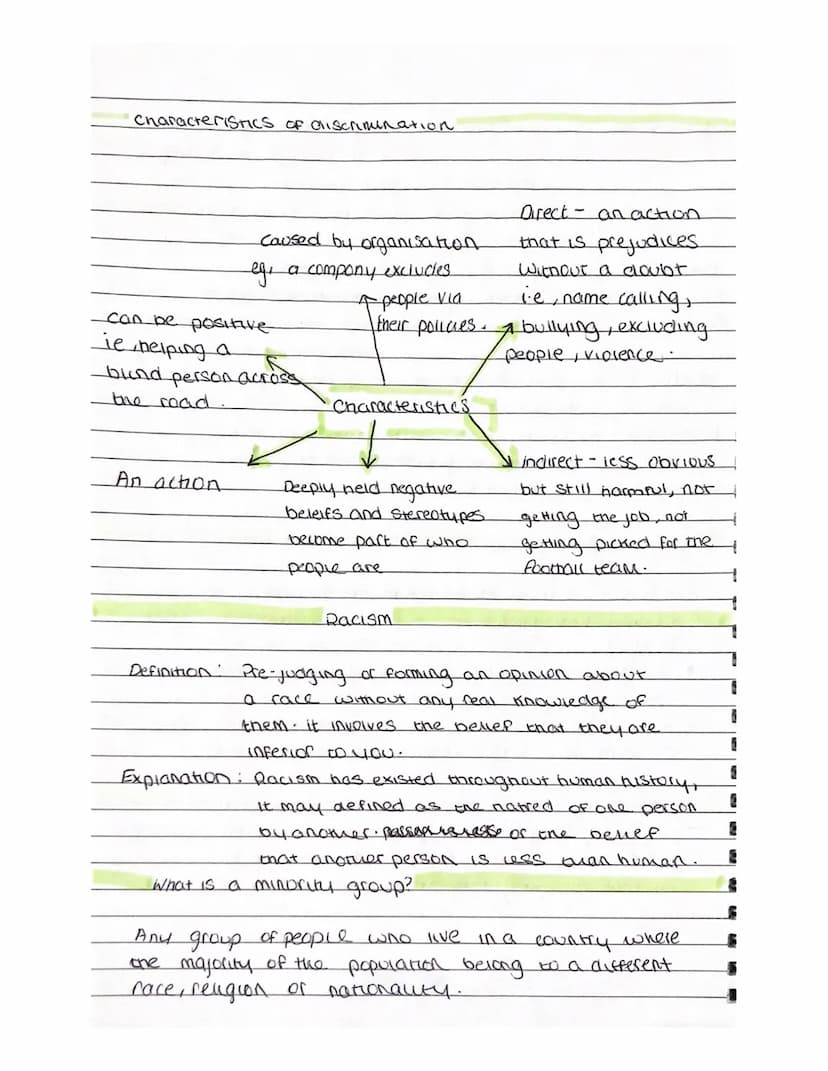 Characteristics of discrimination
Direct - an action
that is prejudices
without a doubt
i.e, name calling,
bullying, excluding
people, violence.
Caused by organisation
eg, a company excludes
people via
their policies.
Can be positive
ie, helping a
blind person across
the road.
Characteristics
An action
Deeply held negative
beleifs and stereotypes
become part of who
people are
Indirect - less obvious
but still harmful, not
getting the job, not
getting picked for the
football team.
Racism
Definition: Pre-judging or forming an opinion about
a race without any real knowledge of
them. it involves the belief that they are
inferior to you.
Explanation: Racism has existed throughout human history,
it may defined as the hatred of one person
by another. or the belief
that another person is less than human.
What is a minority group?
Any group of people who live in a country where
the majority of the population belong to a different
race, religion or nationality.